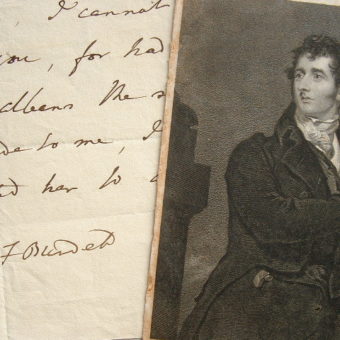 I cannot
you, for had
Albans the s
de to me, I
d her to a
F Burdett